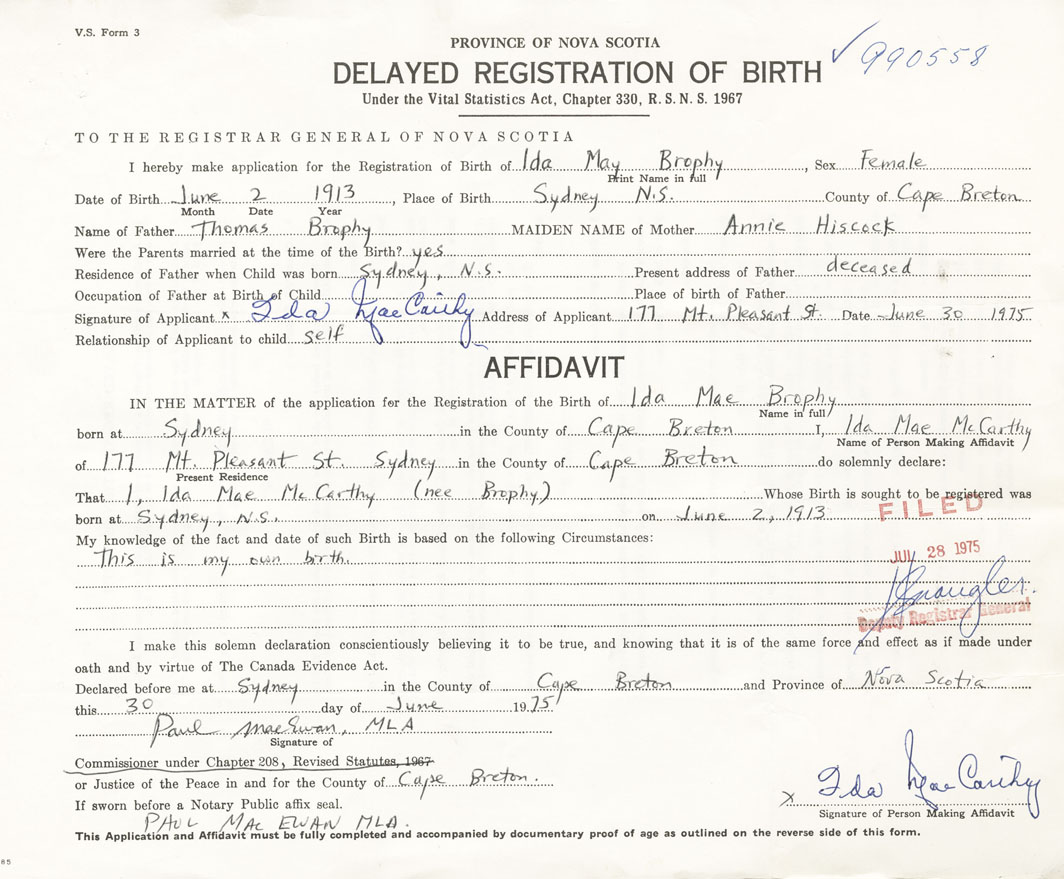 V.S. Form 3
PROVINCE OF NOVA SCOTIA
✓ 990558
DELAYED REGISTRATION OF BIRTH
Under the Vital Statistics Act, Chapter 330, R. S. N. S. 1967
TO THE REGISTRAR GENERAL OF NOVA SCOTIA
I hereby make application for the Registration of Birth of Ida May Brophy, Sex Female
Print Name in full
Date of Birth June 2 1913, Place of Birth Sydney N.S. County of Cape Breton
Month Date Year
Name of Father Thomas Brophy MAIDEN NAME of Mother Annie Hiscock
Were the Parents married at the time of the Birth? yes
Residence of Father when Child was born Sydney, N.S. Present address of Father deceased
Occupation of Father at Birth of Child Place of birth of Father
Signature of Applicant x Ida MacCarthy Address of Applicant 177 Mt. Pleasant St. Date June 30 1975
Relationship of Applicant to child self
AFFIDAVIT
IN THE MATTER of the application for the Registration of the Birth of Ida Mae Brophy
Name in full
born at Sydney in the County of Cape Breton I, Ida Mae McCarthy
Name of Person Making Affidavit
of 177 Mt. Pleasant St. Sydney in the County of Cape Breton do solemnly declare:
Present Residence
That I, Ida Mae McCarthy (nee Brophy) Whose Birth is sought to be registered was
born at Sydney, N.S. on June 2, 1913
FILED
My knowledge of the fact and date of such Birth is based on the following Circumstances:
This is my own birth.
JUL 28 1975
Deputy Registrar General
I make this solemn declaration conscientiously believing it to be true, and knowing that it is of the same force and effect as if made under
oath and by virtue of The Canada Evidence Act.
Declared before me at Sydney in the County of Cape Breton and Province of Nova Scotia
this 30 day of June 1975
Paul MacEwan, MLA
Signature of
Commissioner under Chapter 208, Revised Statutes, 1967
or Justice of the Peace in and for the County of Cape Breton.
If sworn before a Notary Public affix seal.
PAUL MAC EWAN MLA.
x Ida MacCarthy
Signature of Person Making Affidavit
This Application and Affidavit must be fully completed and accompanied by documentary proof of age as outlined on the reverse side of this form.
85